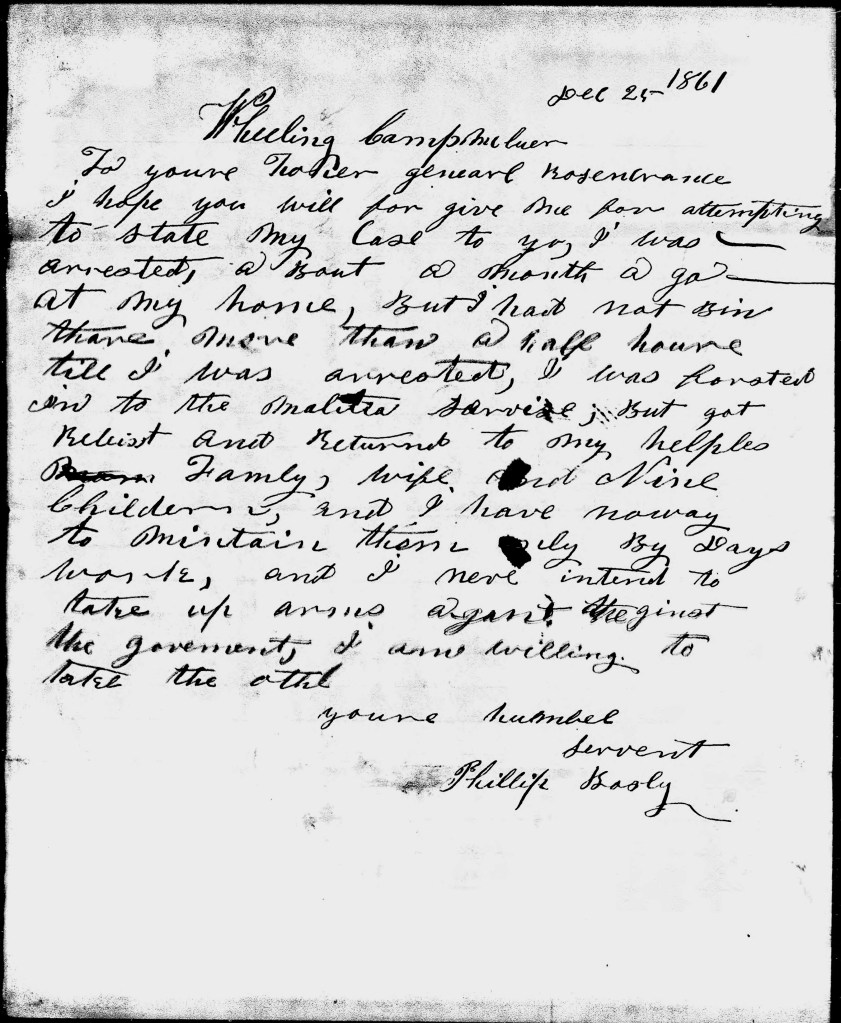 Dec 25 1861
Wheeling Camp
To youre honer genearl Rosencrance
I hope you will for give me for attempting
to state my Case to yo, I was
arrested, a Bout a month a go
at my home, But I had not Bin
thare more than a half houre
till I was arrested, I was forsted
in to the malitia Servise, But got
and Returnd to my helples
Famly, wife and Nine
Childern, and I have noway
to mintain them only By Days
work, and I neve intend to
take up arms aganst the ginst
the goverment, I am willing to
take the othe
youre humbel
Servent
Phillip Bosly